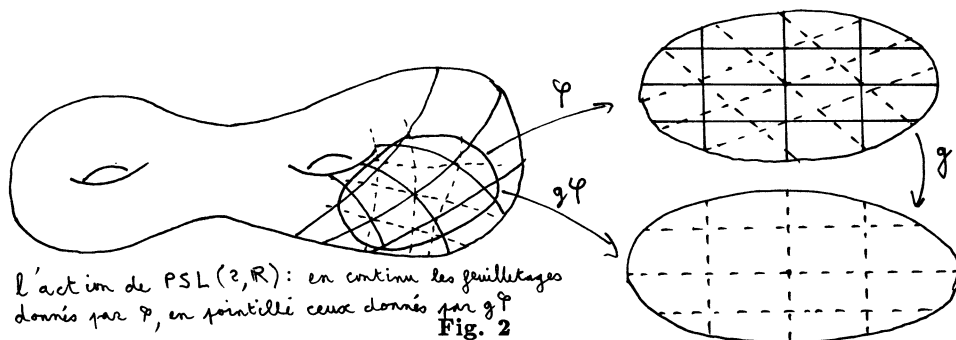 φ
g
gφ
l'action de PSL(2,ℝ): en continu les feuilletages
donnés par φ, en pointillé ceux donnés par gφ
Fig. 2